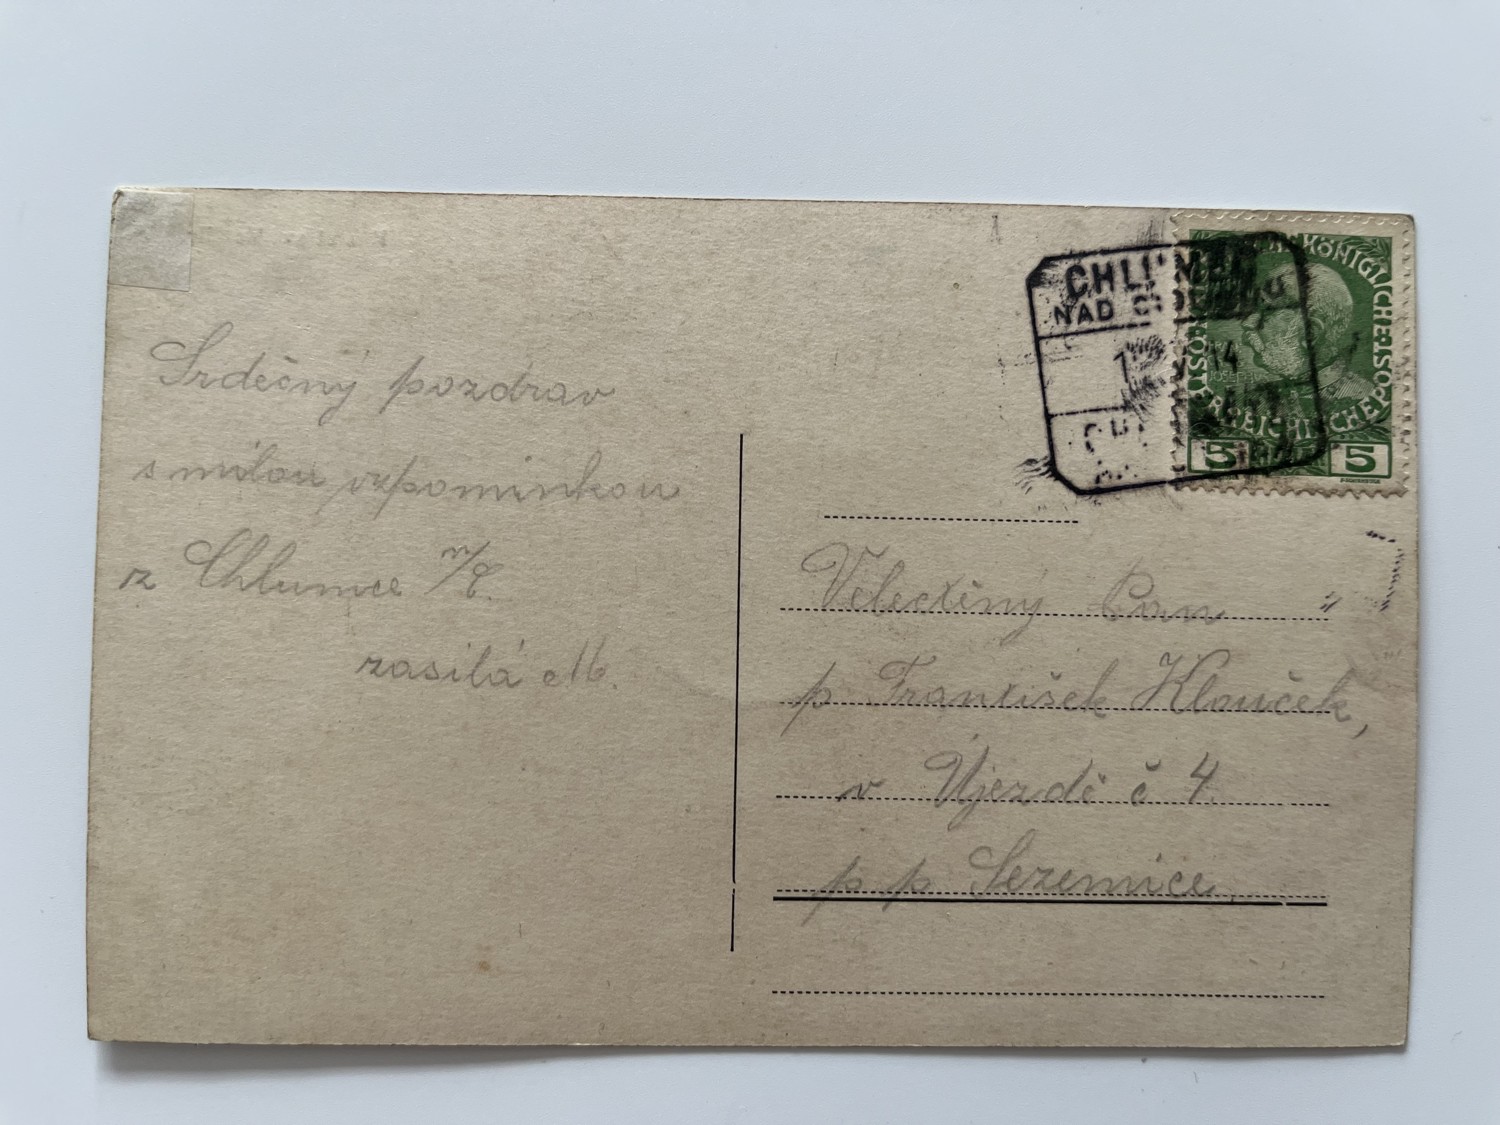 Srdečný pozdrav
s milou vzpomínkou
z Chlumce n/C.
zasílá M.
CHLUMEC
NAD CIDLINOU
14
KÖNIGLICHE
ÖSTERREICHISCHE POST
5 5
Velectěný Pan
p František Klouček,
v Újezdě č 4
p p Sezemice